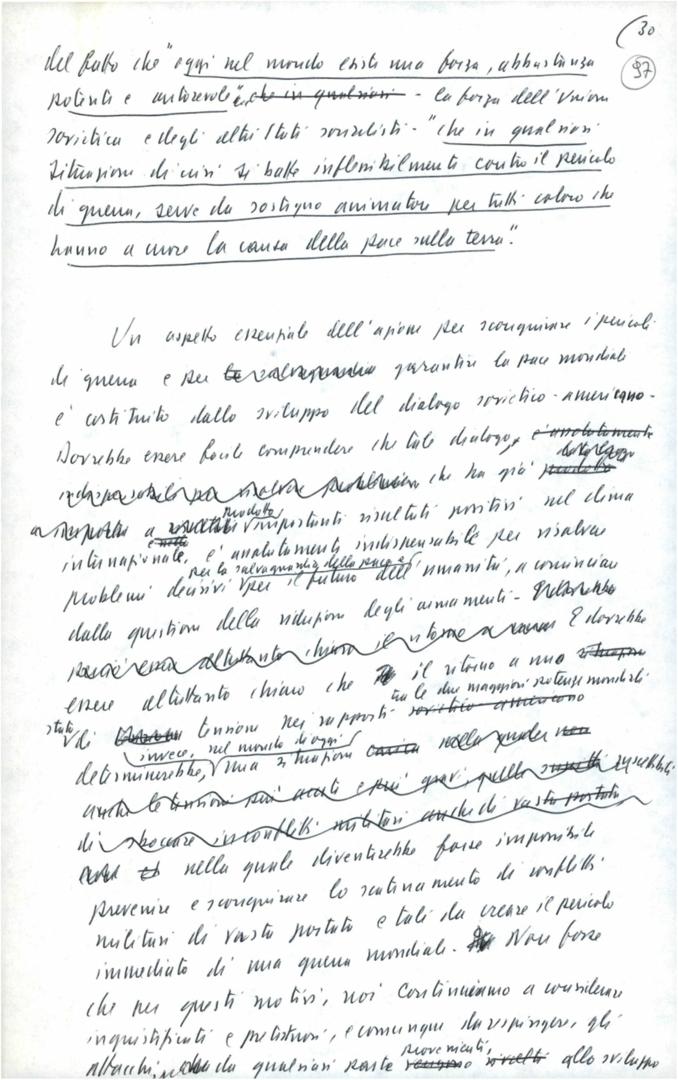 30
97
del fatto che "oggi nel mondo esiste una forza, abbastanza
potente e autorevole", che in qualsiasi - la forza dell'Unione
sovietica e degli altri Stati socialisti - "che in qualsiasi
situazione di crisi si batte inflessibilmente contro il pericolo
di guerra, serve da sostegno animatore per tutti coloro che
hanno a cuore la causa della pace sulla terra".
Un aspetto essenziale dell'azione per scongiurare i pericoli
di guerra e per la salvaguardia garantire la pace mondiale
è costituito dallo sviluppo del dialogo sovietico-americano -
Dovrebbe essere facile comprendere che tale dialogo, è assolutamente
indispensabile per risolvere problemi che ha già prodotto
a prodotto importanti risultati positivi nel clima
internazionale, è assolutamente indispensabile per risolvere
per la salvaguardia della pace e
problemi decisivi per il futuro dell'umanità, a cominciare
dalla questione della riduzione degli armamenti - Dovrebbe
altrettanto chiaro il ritorno a E dovrebbe
essere altrettanto chiaro che il ritorno a uno
tra le due maggiori potenze mondiali
stato di tensione nei rapporti sovietico-americano
invece, nel mondo di oggi
determinerebbe, una situazione nella quale non
anche le tensioni più acute e più gravi, quelle suscettibili
di sboccare in conflitti militari anche di vasta portata
nella quale diventerebbe forse impossibile
prevenire e scongiurare lo scatenamento di conflitti
militari di vasta portata e tali da creare il pericolo
immediato di una guerra mondiale. Non forse
che per questi motivi, noi continuiamo a considerare
ingiustificati e pretestuosi, e comunque da respingere, gli
provenienti,
attacchi, da qualsiasi parte rivolti allo sviluppo